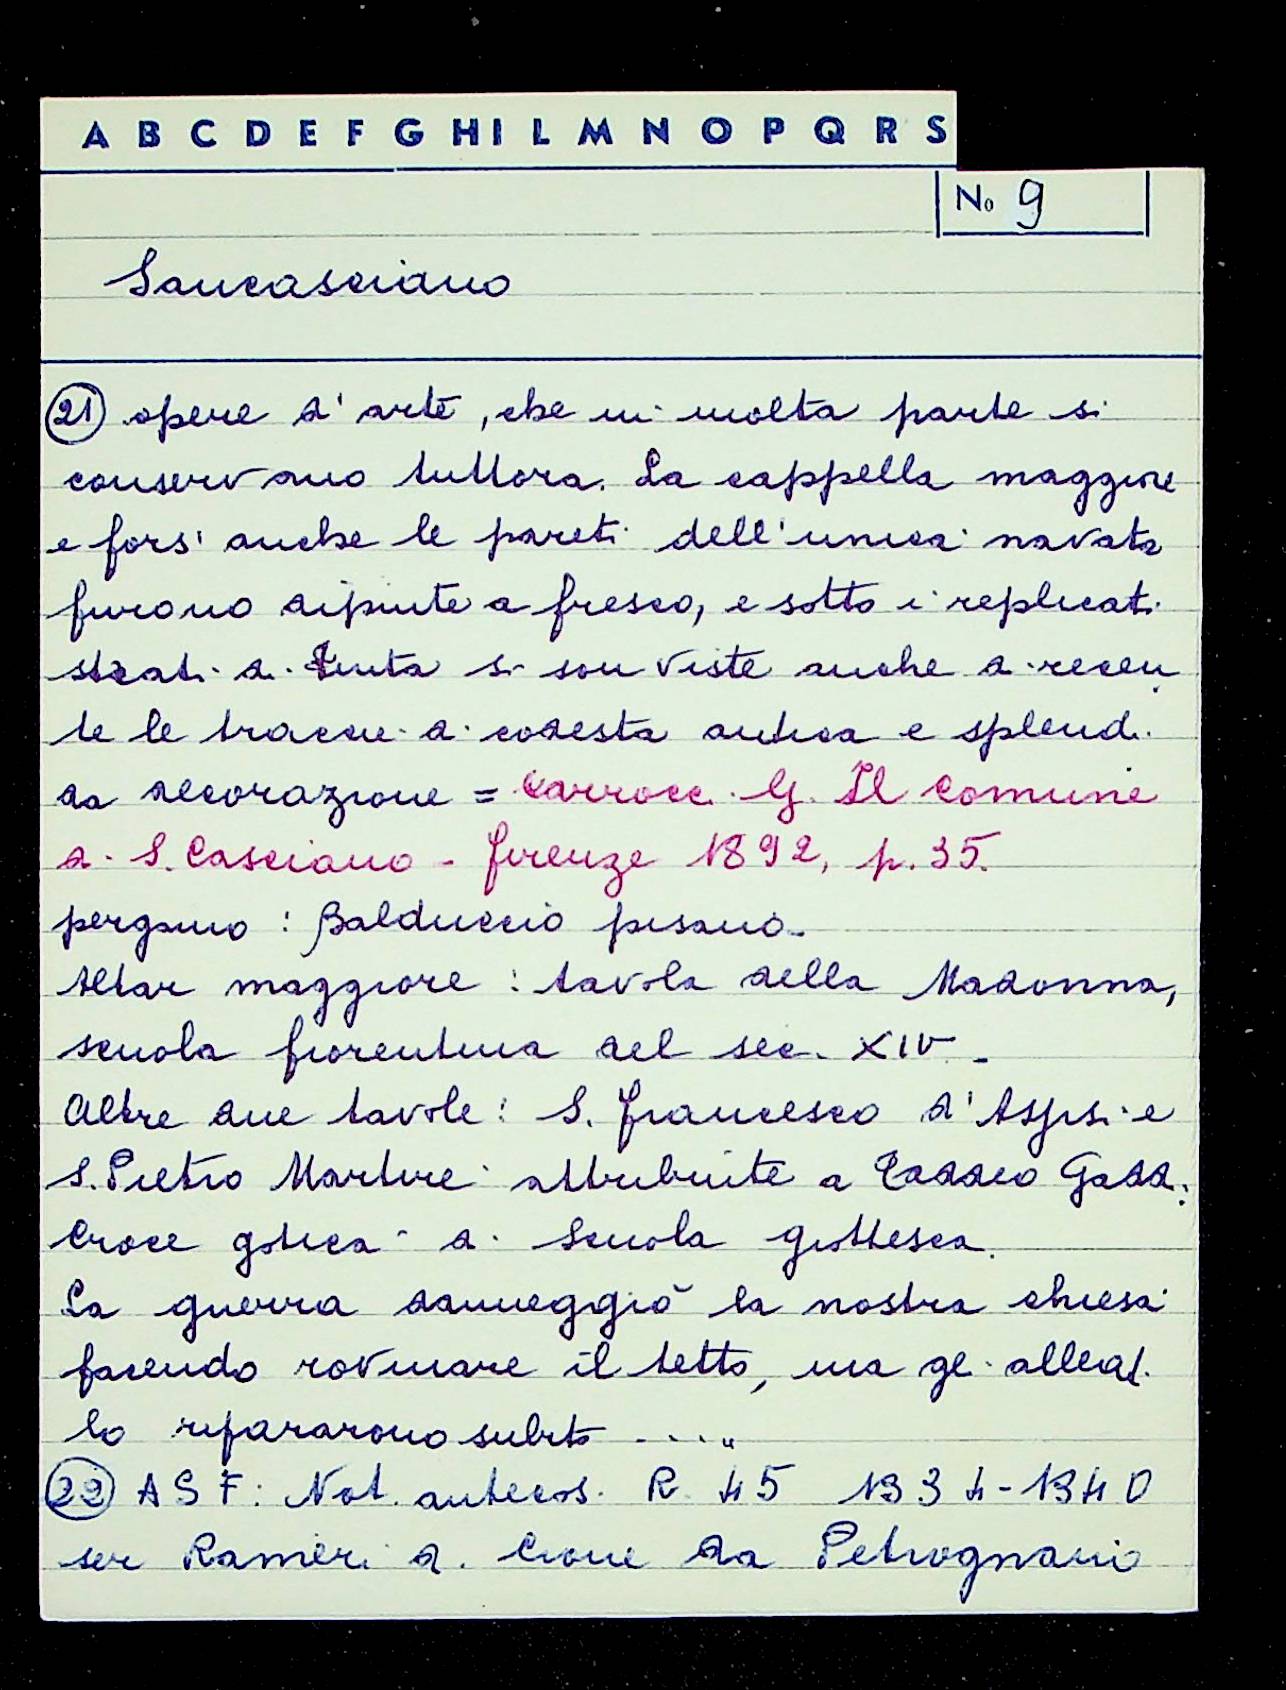 A B C D E F G H I L M N O P Q R S
No 9
Sancasciano
21 opere d'arte, che in molta parte si
conservano tuttora. La cappella maggiore
e fors' anche le pareti dell'unica navata
furono dipinte a fresco, e sotto i replicati
strati di tinta si son viste anche di recen
te le traccie di codesta antica e splendi
da decorazione = Carrocci G. Il Comune
di S. Casciano - Firenze 1892, p. 35.
pergamo : Balduccio pisano.
Altar maggiore : tavola della Madonna,
scuola fiorentina del sec. XIV -
Altre due tavole : S. Francesco d'Assisi e
S. Pietro Martire attribuite a Taddeo Gaddi.
Croce gotica di scuola giottesca.
La guerra danneggiò la nostra chiesa
facendo rovinare il tetto, ma gli alleati
lo ripararono subito ...."
22 ASF: Not. antecos. R. 45 1334-1340
ser Ranieri di Cione da Petrognano